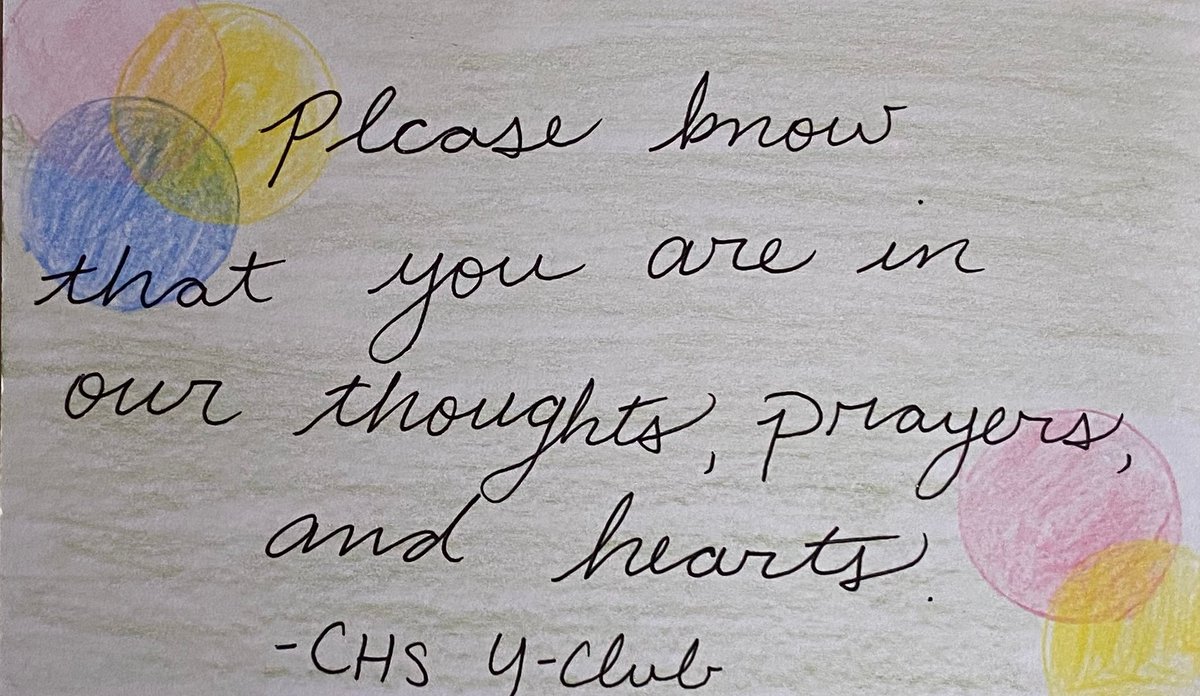 Please know
that you are in
our thoughts, prayers,
and hearts.
-CHS Y-Club